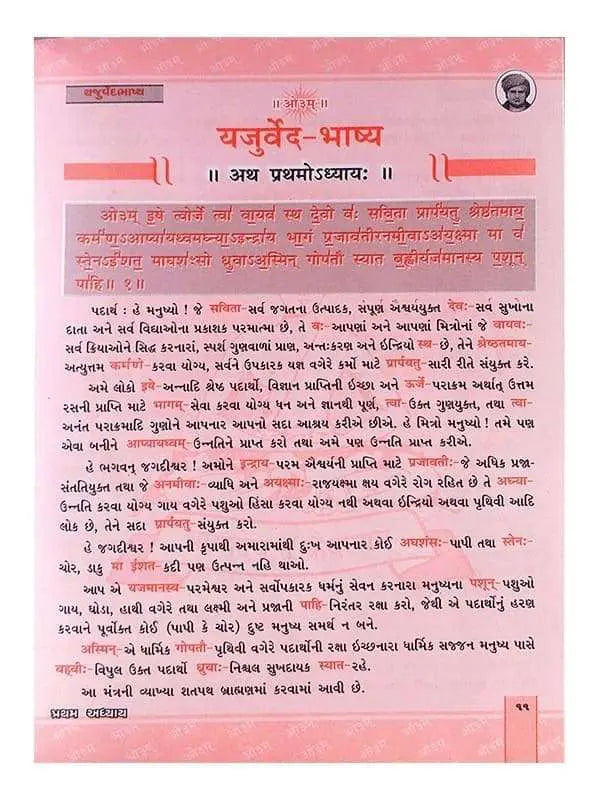 યજુર્વેદભાષ્ય
॥ ઓ૩મ્ ॥
યજુર્વેદ-ભાષ્ય
॥ અથ પ્રથમોઽધ્યાયઃ ॥
ઓ૩મ્ इ॒षे त्वो॒र्जे त्वा॑ वा॒यव॑ स्थ दे॒वो वः॑ सवि॒ता प्रार्प॑यतु॒ श्रेष्ठ॑तमाय॒
कर्म॑ण॒ऽआप्या॑यध्वमघ्न्या॒ऽइन्द्रा॑य भा॒गं प्र॒जाव॑तीरनमी॒वाऽअ॑य॒क्ष्मा मा व॑
स्ते॒नऽई॑शत॒ माघश॑ꣳसो ध्रु॒वाऽअ॒स्मिन् गोप॑तौ स्यात ब॒ह्वीर्यज॑मानस्य प॒शून्
पा॑हि॥ १॥
પદાર્થ : હે મનુષ્યો ! જે સવિતા-સર્વ જગતના ઉત્પાદક, સંપૂર્ણ ઐશ્વર્યયુક્ત દેવઃ-સર્વ સુખોના
દાતા અને સર્વ વિદ્યાઓના પ્રકાશક પરમાત્મા છે, તે વઃ-આપણાં અને આપણાં મિત્રોનાં જે વાયવઃ-
સર્વ ક્રિયાઓને સિદ્ધ કરનારાં, સ્પર્શ ગુણવાળાં પ્રાણ, અન્તઃકરણ અને ઇન્દ્રિયો સ્થ-છે, તેને શ્રેષ્ઠતમાય-
અત્યુત્તમ કર્મણે-કરવા યોગ્ય, સર્વને ઉપકારક યજ્ઞ વગેરે કર્મો માટે પ્રાર્પયતુ-સારી રીતે સંયુક્ત કરે.
અમે લોકો ઇષે-અન્નાદિ શ્રેષ્ઠ પદાર્થો, વિજ્ઞાન પ્રાપ્તિની ઇચ્છા અને ઊર્જે-પરાક્રમ અર્થાત્ ઉત્તમ
રસની પ્રાપ્તિ માટે ભાગમ્-સેવા કરવા યોગ્ય ધન અને જ્ઞાનથી પૂર્ણ, ત્વા-ઉક્ત ગુણયુક્ત, તથા ત્વા-
અનંત પરાક્રમાદિ ગુણોને આપનાર આપનો સદા આશ્રય કરીએ છીએ. હે મિત્રો મનુષ્યો ! તમે પણ
એવા બનીને આપ્યાયધ્વમ્-ઉન્નતિને પ્રાપ્ત કરો તથા અમે પણ ઉન્નતિ પ્રાપ્ત કરીએ.
હે ભગવન્ જગદીશ્વર ! અમોને ઇન્દ્રાય-પરમ ઐશ્વર્યની પ્રાપ્તિ માટે પ્રજાવતીઃ-જે અધિક પ્રજા-
સંતતિયુક્ત તથા જે અનમીવાઃ-વ્યાધિ અને અયક્ષ્માઃ-રાજયક્ષ્મા ક્ષય વગેરે રોગ રહિત છે તે અઘ્ન્યા-
ઉન્નતિ કરવા યોગ્ય ગાય વગેરે પશુઓ હિંસા કરવા યોગ્ય નથી અથવા ઇન્દ્રિયો અથવા પૃથિવી આદિ
લોક છે, તેને સદા પ્રાર્પયતુ-સંયુક્ત કરો.
હે જગદીશ્વર ! આપની કૃપાથી અમારામાંથી દુઃખ આપનાર કોઈ અઘશંસઃ-પાપી તથા સ્તેનઃ-
ચોર, ડાકુ મા ઈશત-કદી પણ ઉત્પન્ન નહિ થાઓ.
આપ એ યજમાનસ્ય-પરમેશ્વર અને સર્વોપકારક ધર્મનું સેવન કરનારા મનુષ્યના પશૂન્-પશુઓ
ગાય, ઘોડા, હાથી વગેરે તથા લક્ષ્મી અને પ્રજાની પાહિ-નિરંતર રક્ષા કરો, જેથી એ પદાર્થોનું હરણ
કરવાને પૂર્વોક્ત કોઈ (પાપી કે ચોર) દુષ્ટ મનુષ્ય સમર્થ ન બને.
અસ્મિન્-એ ધાર્મિક ગોપતૌ-પૃથિવી વગેરે પદાર્થોની રક્ષા ઇચ્છનારા ધાર્મિક સજ્જન મનુષ્ય પાસે
બહ્વીઃ-વિપુલ ઉક્ત પદાર્થો ધ્રુવાઃ-નિશ્ચલ સુખદાયક સ્યાત-રહે.
આ મંત્રની વ્યાખ્યા શતપથ બ્રાહ્મણમાં કરવામાં આવી છે.
પ્રથમ અધ્યાય
૧૧